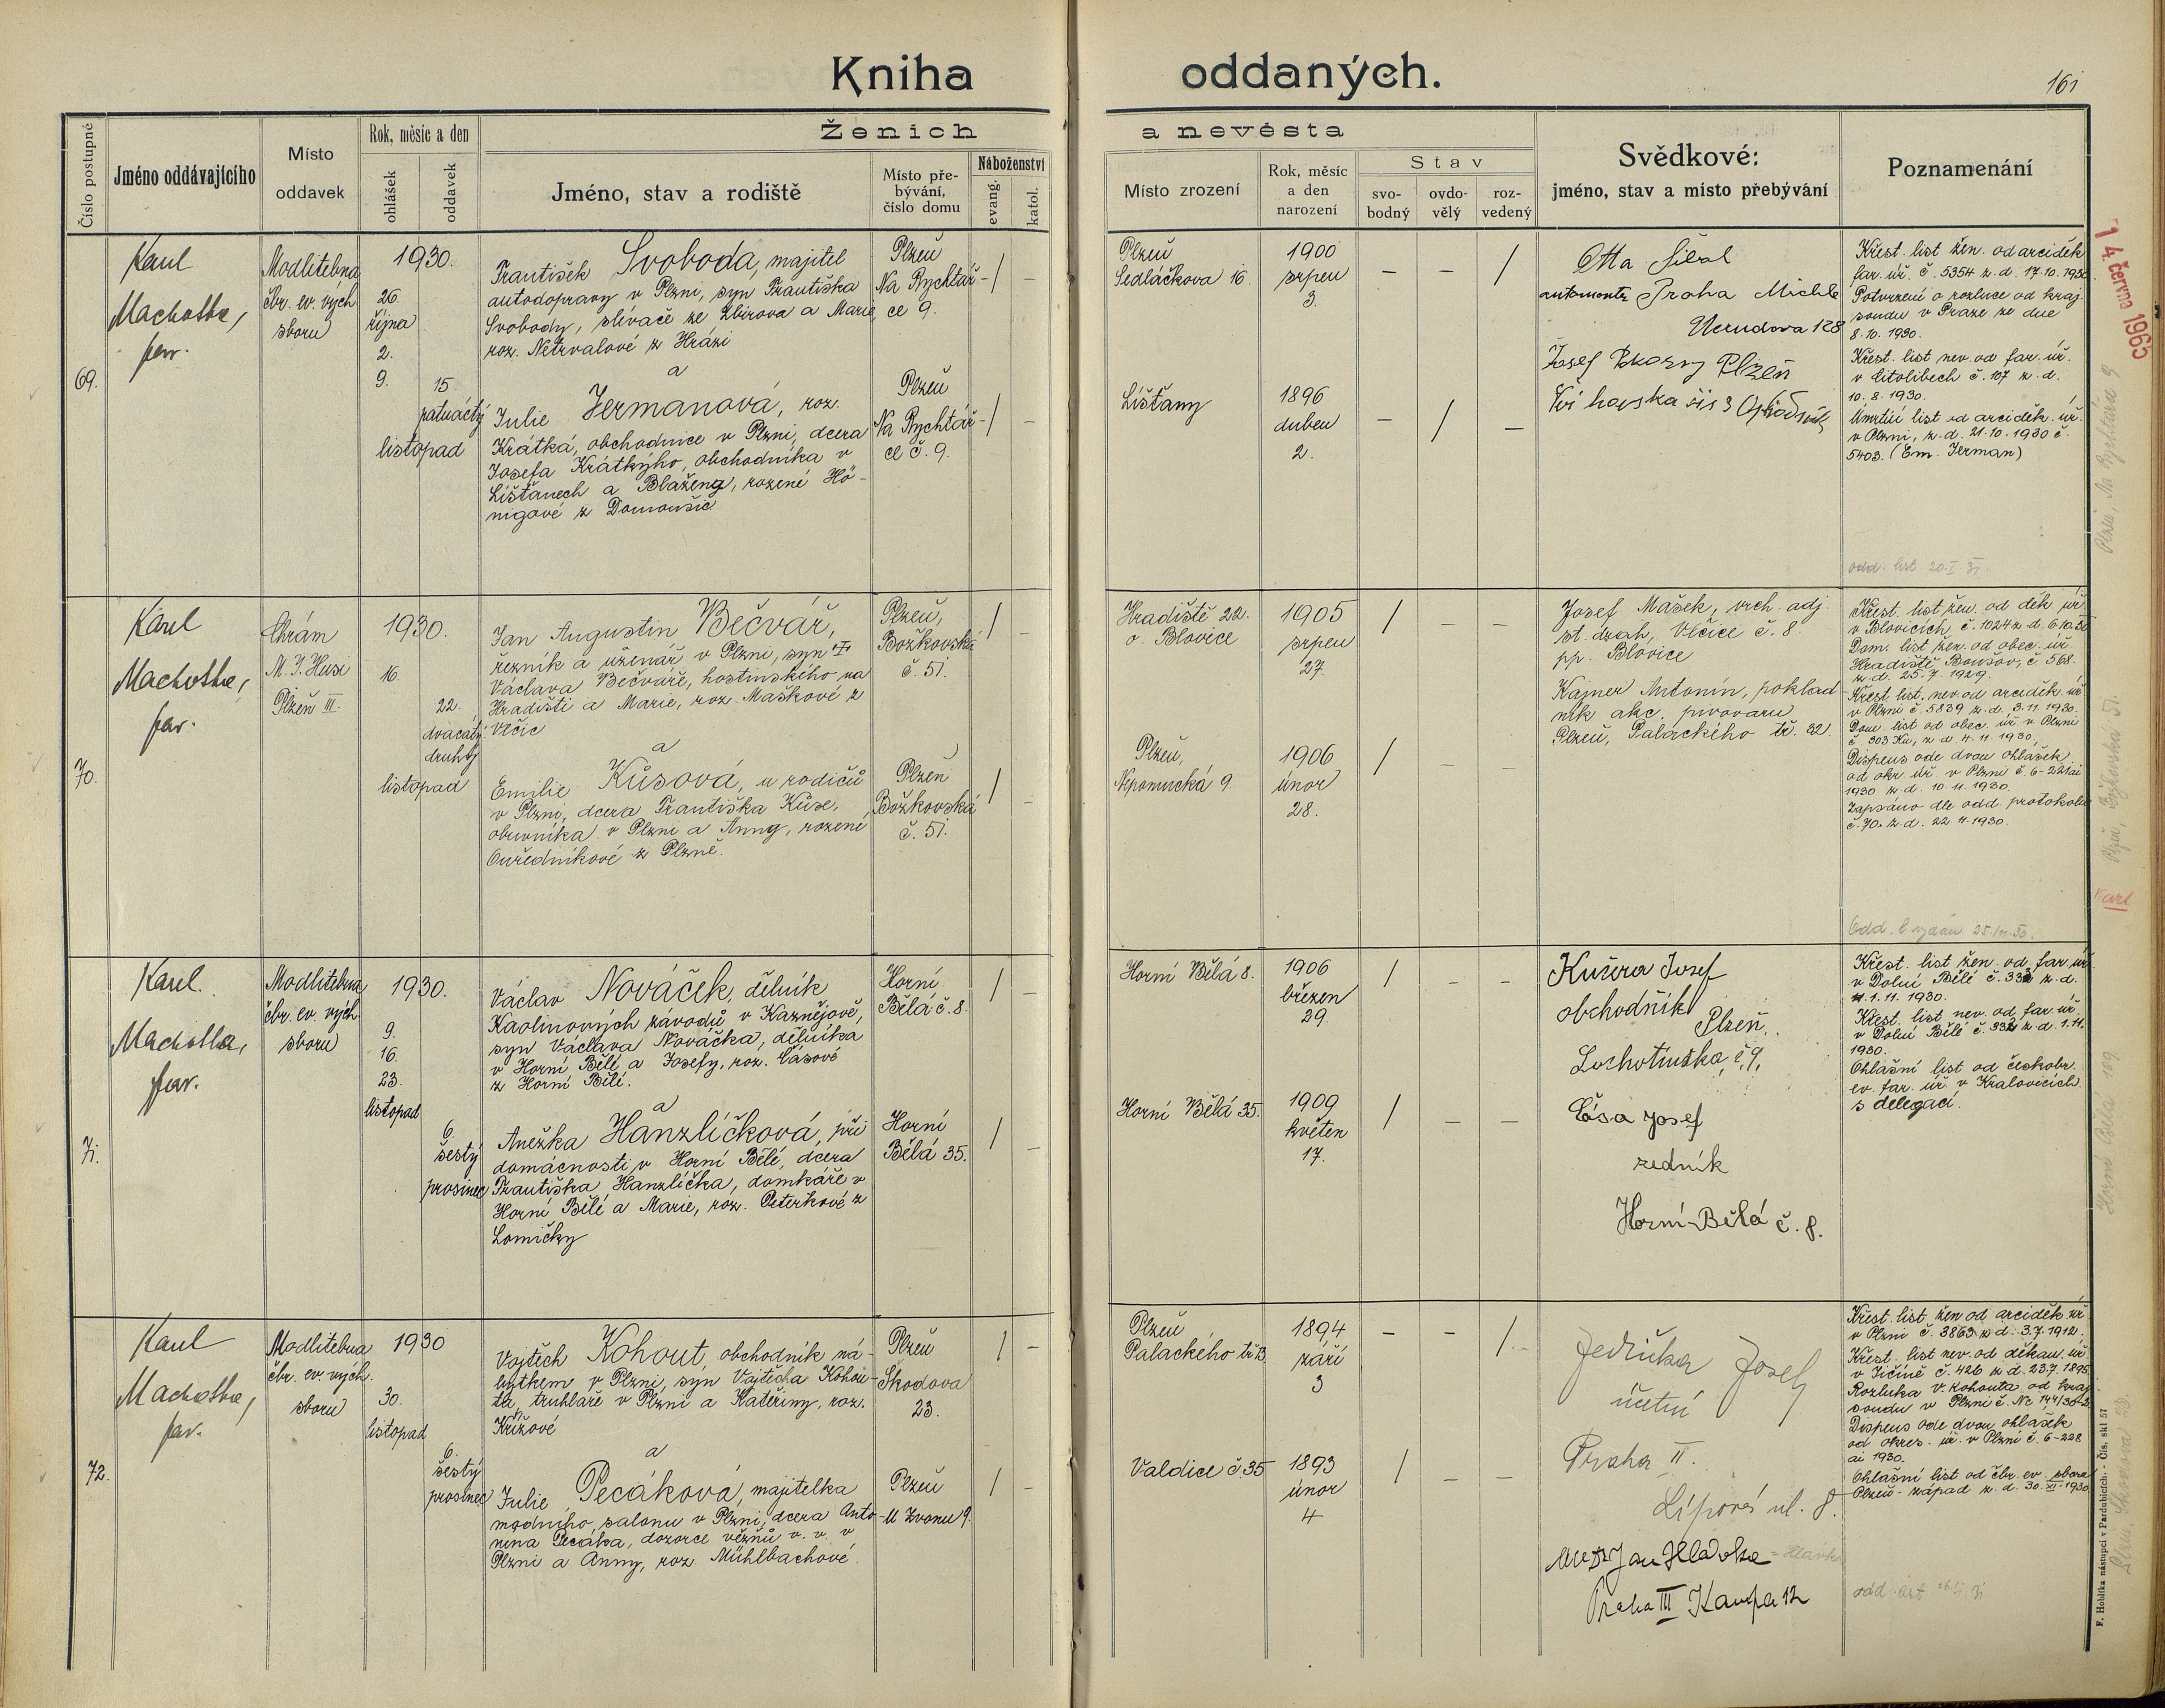 Kniha oddaných.
161
Číslo postupné
Jméno oddávajícího
Místo
oddavek
Rok, měsíc a den
ohlášek
oddavek
Ženich a nevěsta
Jméno, stav a rodiště
Místo pře-
bývání,
číslo domu
Náboženství
evang.
katol.
Místo zrození
Rok, měsíc
a den
narození
Stav
svo-
bodný
ovdo-
vělý
roz-
vedený
Svědkové:
jméno, stav a místo přebývání
Poznamenání
69.
Karel
Machotka,
far.
Modlitebna
čbr. ev. vých.
sboru
1930.
26.
října
2.
9.
15.
patnáctý
listopad
František Svoboda, majitel
autodopravy v Plzni, syn Františka
Svobody, slévače ze Zbirova a Marie,
roz. Netrvalové z Hrázi
a
Julie Jermanová, roz.
Krátká, obchodnice v Plzni, dcera
Josefa Krátkýho, obchodníka v
Lišťanech a Blaženy, rozené Hö-
nigové z Domoušic
Plzeň
Na Rychtář-
ce 9.
Plzeň
Na Rychtář-
ce č. 9.
/ –
/ –
Plzeň
Sedláčkova 16.
1900
srpen
3.
– – /
Lišťany
1896
duben
2.
– / –
Otta
automontr Praha Michle
128
Josef Plzeň
3
Křest. list žen. od arciděk.
far. úř. č. 5354 z. d. 17.10.1930
Potvrzení o rozluce od kraj.
soudu v Praze ze dne
8.10.1930.
Křest. list nev. od far. úř.
v Citolibech č. 107 z. d.
10.8.1930.
Úmrtní list od arciděk. úř.
v Plzni, z. d. 21.10.1930 č.
5403. (Em. Jerman)
odd. list 20.I.31.
14. června 1965
Plzeň, Na Rychtářce 9
70.
Karel
Machotka,
far.
Chrám
M. J. Husi
Plzeň III.
1930.
16.
22.
dvacátý
druhý
listopad
Jan Augustin Bečvář,
řezník a uzenář v Plzni, syn
Václava Bečváře, hostinského na
Hradišti a Marie, roz. Maškové z
Vlčic
a
Emilie Kůsová, u rodičů
v Plzni, dcera Františka Kůse,
obuvníka v Plzni a Anny, rozené
Ouředníkové z Plzně.
Plzeň,
Božkovská
č. 51.
Plzeň
Božkovská
č. 51.
/ –
/ –
Hradiště 22.
o. Blovice
1905
srpen
27.
/ – –
Plzeň,
Nepomucká 9
1906
únor
28.
/ – –
Josef Mašek, vrch. adj.
st. drah, Vlčice č. 8.
pp. Blovice
Kajner Antonín, poklad-
ník akc. pivovaru
Plzeň, Palackého tř. 32.
Křest. list žen. od děk. úř.
v Blovicích, č. 1024 z. d. 6.10.30
Dom. list žen. od obec. úř.
Hradiště Boušov, č. 568.
z. d. 25.7.1929.
Křest. list. nev. od arciděk. úř.
v Plzni č. 5839 z. d. 3.11.1930.
Dom. list od obec. úř. v Plzni
č. 303 Ku, z. d. 4.11.1930.
Dispens ode dvou ohlášek
od okr. úř. v Plzni č. 6-221
1930 z. d. 10.11.1930.
Zapsáno dle odd. protokolu
č. 70. z. d. 22.11.1930.
Plzeň, Božkovská 51.
Karel
71.
Karel
Machotka,
far.
Modlitebna
čbr. ev. vých.
sboru
1930.
9.
16.
23.
listopad
6.
šestý
prosinec
Václav Nováček, dělník
Kaolinových závodů v Kaznějově,
syn Václava Nováčka, dělníka
v Horní Bělé a Josefy, roz. Čásové
z Horní Bělé.
a
Anežka Hanzlíčková, při
domácnosti v Horní Bělé, dcera
Františka Hanzlíčka, domkáře v
Horní Bělé a Marie, roz. Peterkové z
Lomičky
Horní
Bělá č. 8.
Horní
Bělá 35.
/ –
/ –
Horní Bělá 8.
1906
březen
29.
/ – –
Horní Bělá 35.
1909
květen
17.
/ – –
Kučera Josef
obchodník
Plzeň,
Lochotínská č. 9,
Čása Josef
zedník
Horní Bělá č. 8.
Křest. list žen. od far. úř.
v Dolní Bělé č. 333 z. d.
1.11.1930.
Křest. list nev. od far. úř.
v Dolní Bělé č. 332 z. d. 1.11.
1930.
Ohlášní list od českobr.
ev. far. úř. v Kralovicích
s delegací.
Horní Bělá 109
72.
Karel
Machotka,
far.
Modlitebna
čbr. ev. vých.
sboru
1930
30.
listopad
6.
šestý
prosinec
Vojtěch Kohout, obchodník ná-
bytkem v Plzni, syn Vojtěcha Kohou-
ta, truhláře v Plzni a Kateřiny, roz.
Křížové
a
Julie Pecáková, majitelka
modního salonu v Plzni, dcera Anto-
nína Pecáka, dozorce věznů v. v. v
Plzni a Anny, roz. Mühlbachové
Plzeň
Škodova
23.
Plzeň
U Zvonu 9.
/ –
/ –
Plzeň
Palackého tř. 13
1894
září
3
– – /
Valdice č. 35
1893
únor
4
/ – –
Jedlička Josef
účetní
Praha II.
Lípová ul. 8.
Jan Hlavka
Praha III Kampa 12
Křest. list žen. od arciděk. úř.
v Plzni č. 3863 z. d. 3.7.1912.
Křest. list nev. od děkan. úř.
v Jičíně č. 426 z. d. 23.7.1895
Rozluka V. Kohouta od kraj.
soudu v Plzni č. Nc 144/30-2
Dispens ode dvou ohlášek
od okres. úř. v Plzni č. 6-228
ai 1930.
Ohlášní list od čbr. ev. sboru
Plzeň-západ z. d. 30.XI.1930
odd. list
F. Hoblíka nástupci v Pardubicích. - Čís. skl 57